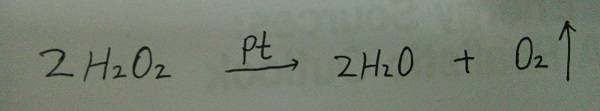 2H₂O₂ \xrightarrow{Pt} 2H₂O + O₂↑